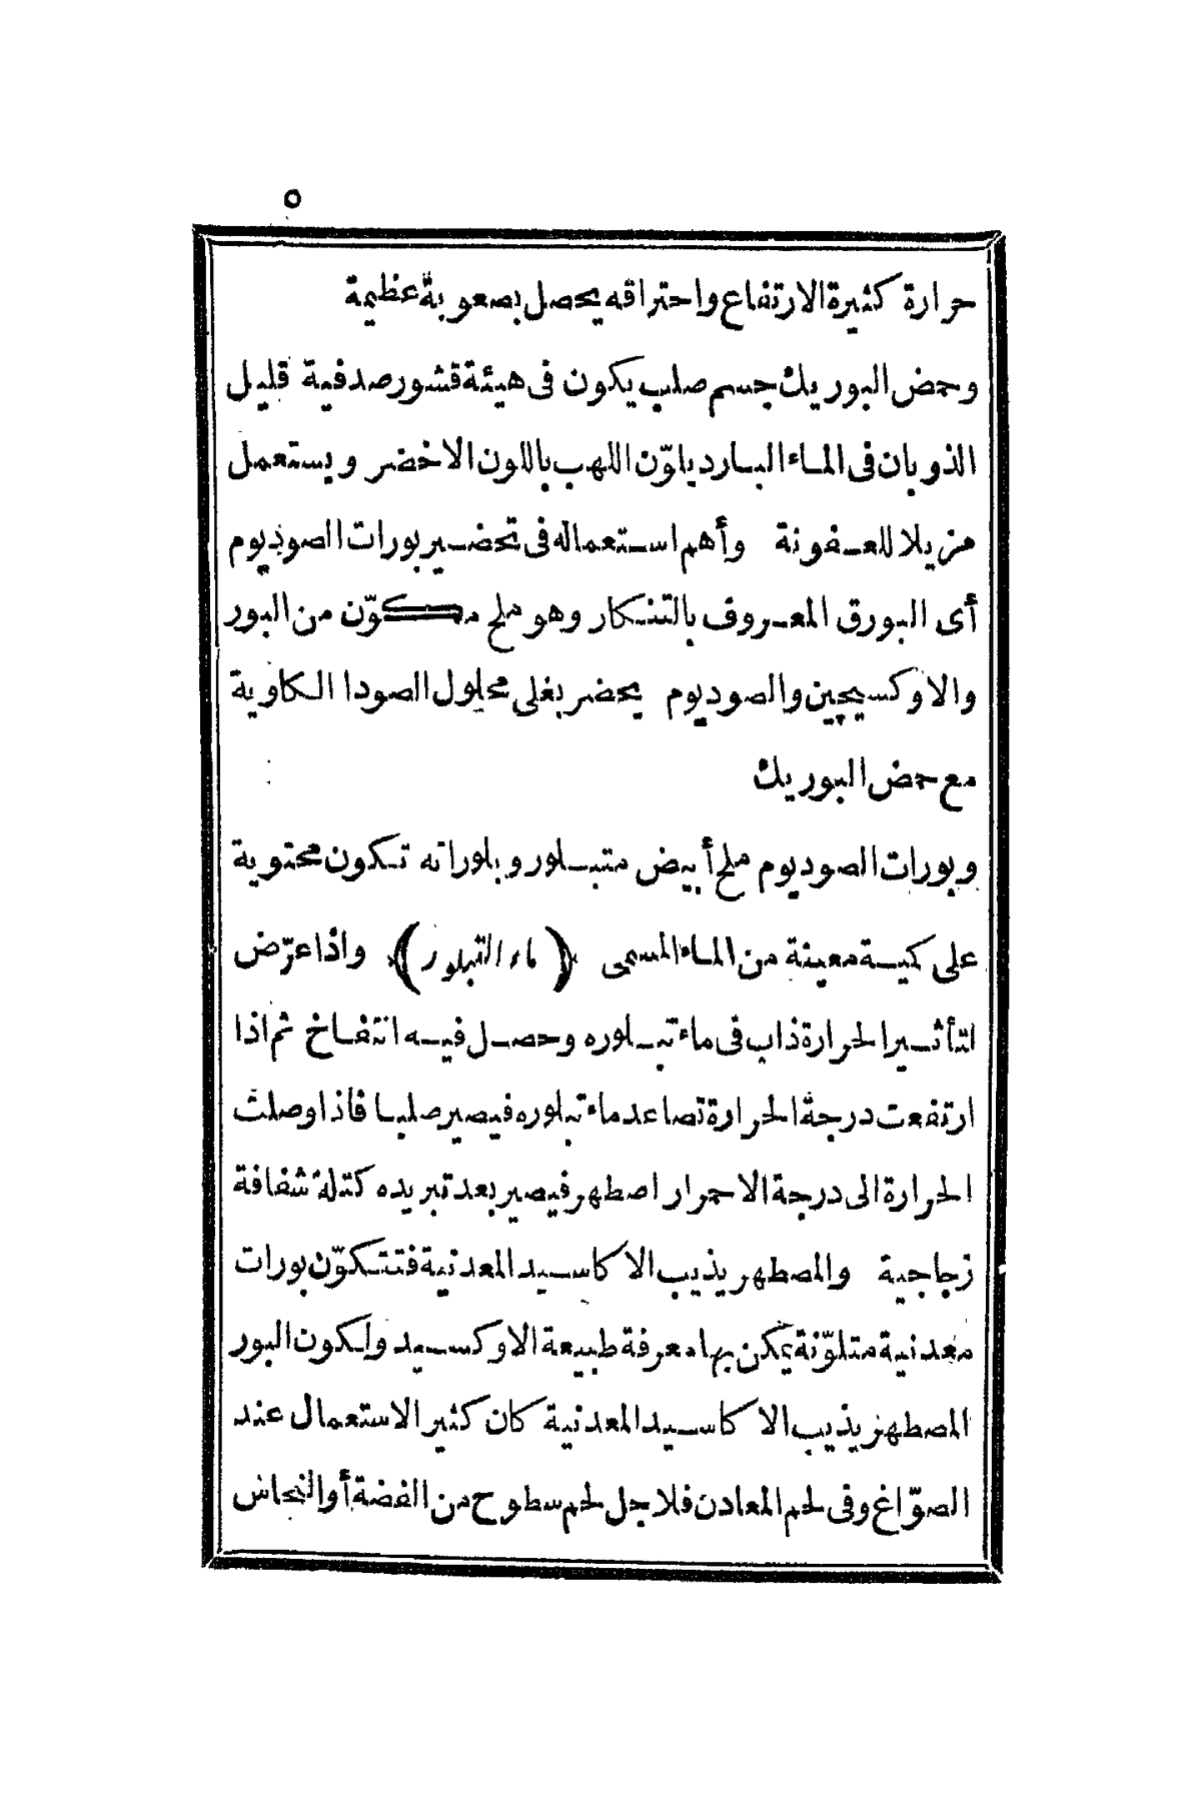 ٥
حرارة كثيرة الارتفاع واحتراقه يحصل بصعوبة عظيمة
وحمض البوريك جسم صلب يكون فى هيئة قشور صدفية قليل
الذوبان فى الماء البارد يلوّن اللهب باللون الاخضر ويستعمل
مزيلا للعفونة وأهم استعماله فى تحضير بورات الصوديوم
أى البورق المعروف بالتنكار وهو ملح مكوّن من البور
والاوكسيچين والصوديوم يحضر بغلى محلول الصودا الكاوية
مع حمض البوريك
وبورات الصوديوم ملح أبيض متبلور وبلوراته تكون محتوية
على كمية معينة من الماء المسمى (ماء التبلور) واذا عرّض
لتأثير الحرارة ذاب فى ماء تبلوره وحصل فيه انتفاخ ثم اذا
ارتفعت درجة الحرارة تصاعد ماء تبلوره فيصير صلبا فاذا وصلت
الحرارة الى درجة الاحمرار اصطهر فيصير بعد تبريده كتلة شفافة
زجاجية والمصطهر يذيب الاكاسيد المعدنية فتتكوّن بورات
معدنية متلوّنة يمكن بها معرفة طبيعة الاوكسيد ولكون البور
المصطهر يذيب الاكاسيد المعدنية كان كثير الاستعمال عند
الصوّاغ وفى لحم المعادن فلاجل لحم سطوح من الفضة أو النحاس